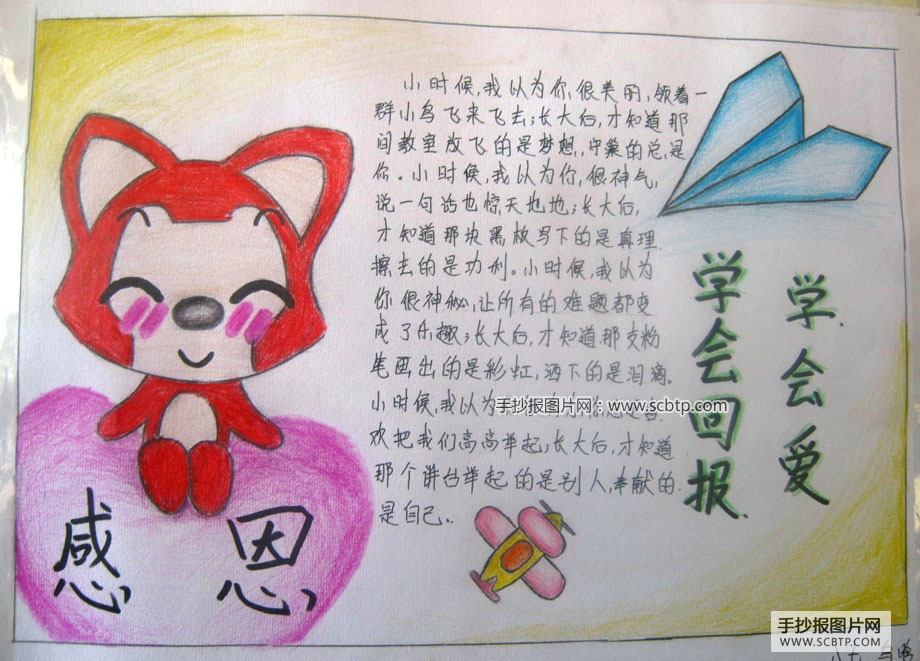 小时候,我认为你很美丽,领着一
群小鸟飞来飞去;长大后,才知道那
间教室放飞的是梦想,守巢的总是
你。小时候,我认为你很神气,
说一句话也惊天地;长大后,
才知道那块黑板写下的是真理.
擦去的是功利。小时候,我认为
你很神秘,让所有的难题都变
成了乐趣;长大后,才知道那支粉
笔画出的是彩虹,洒下的是泪滴。
小时候,我认为
手抄报图片网:www.scbtp.com
欢把我们高高举起;长大后,才知道
那个讲台举起的是别人,奉献的.
是自己.
学会回报.
学会爱
感恩
手抄报图片网
WWW.SCBTP.COM